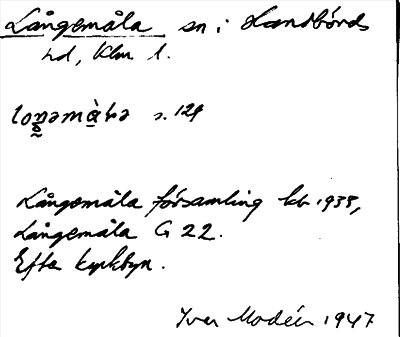 Långemåla sn i Handbörds
hd, Klm l.
s. 124
Långemåla församling kb 1933,
Långemåla G 22.
Efter kyrkbyn.
Ivar Modéer 1947